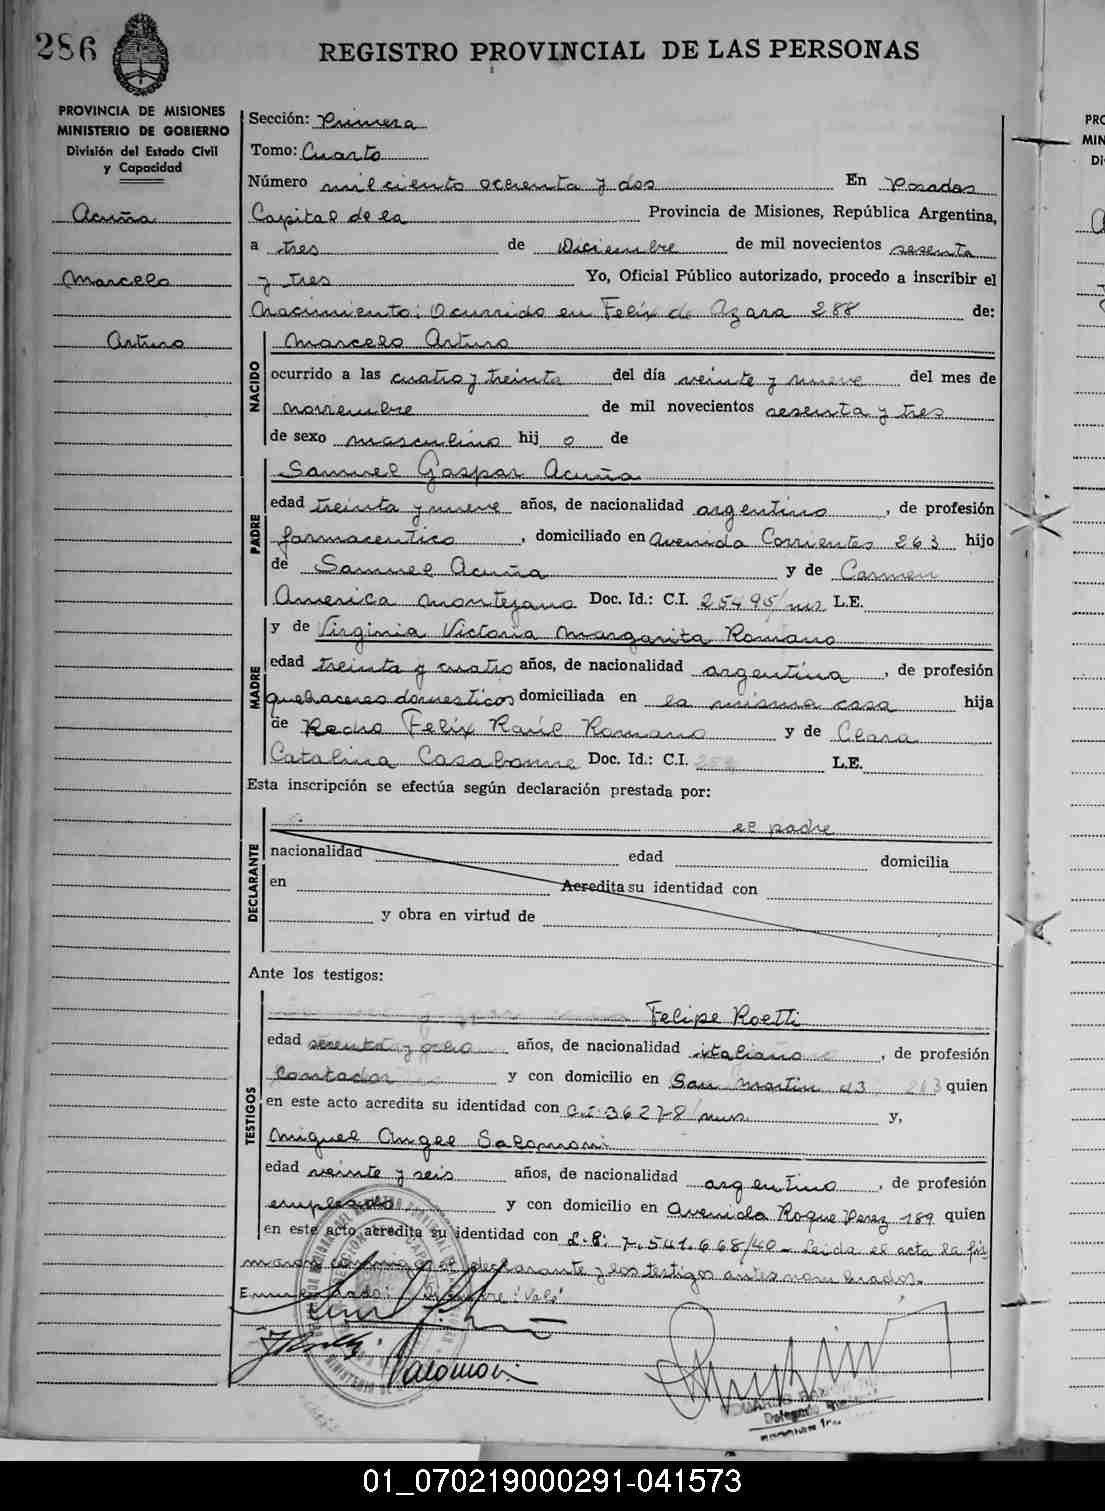 286
REGISTRO PROVINCIAL DE LAS PERSONAS
PROVINCIA DE MISIONES
MINISTERIO DE GOBIERNO
División del Estado Civil
y Capacidad
Acuña
Marcelo
Arturo
Sección: Primera
Tomo: Cuarto
Número mil ciento ochenta y dos En Posadas
Capital de la Provincia de Misiones, República Argentina,
a tres de Diciembre de mil novecientos sesenta
y tres Yo, Oficial Público autorizado, procedo a inscribir el
Nacimiento: Ocurrido en Felix de Azara 288 de:
NACIDO
Marcelo Arturo
ocurrido a las cuatro y treinta del día veinte y nueve del mes de
noviembre de mil novecientos sesenta y tres
de sexo masculino hij o de
PADRE
Samuel Gaspar Acuña
edad treinta y nueve años, de nacionalidad argentino, de profesión
farmaceutico, domiciliado en Avenida Corrientes 263 hijo
de Samuel Acuña y de Carmen
America Montejano Doc. Id.: C.I. 25495/mns L.E.
MADRE
y de Virginia Victoria Margarita Romano
edad treinta y cuatro años, de nacionalidad argentina, de profesión
quehaceres domesticos domiciliada en la misma casa hija
de Pedro Felix Raúl Romano y de Clara
Catalina Casabonne Doc. Id.: C.I. L.E.
Esta inscripción se efectúa según declaración prestada por:
DECLARANTE
el padre
nacionalidad edad domicilia
en Acredita su identidad con
y obra en virtud de
Ante los testigos:
TESTIGOS
Felipe Roetti
edad sesenta y ocho años, de nacionalidad italiano, de profesión
Contador y con domicilio en San Martin 263 quien
en este acto acredita su identidad con C.I. 36278/mns. y,
Miguel Angel Salomoni
edad veinte y seis años, de nacionalidad argentino, de profesión
empleado y con domicilio en Avenida Roque Perez 189 quien
en este acto acredita su identidad con L.E: 7.541.668/40 - Leida el acta la fir-
maron conmigo el declarante y los testigos antes nombrados.
Enmendado: Diciembre: Vale
Salomoni
Delegado
PRO
MIN
Di
01_070219000291-041573